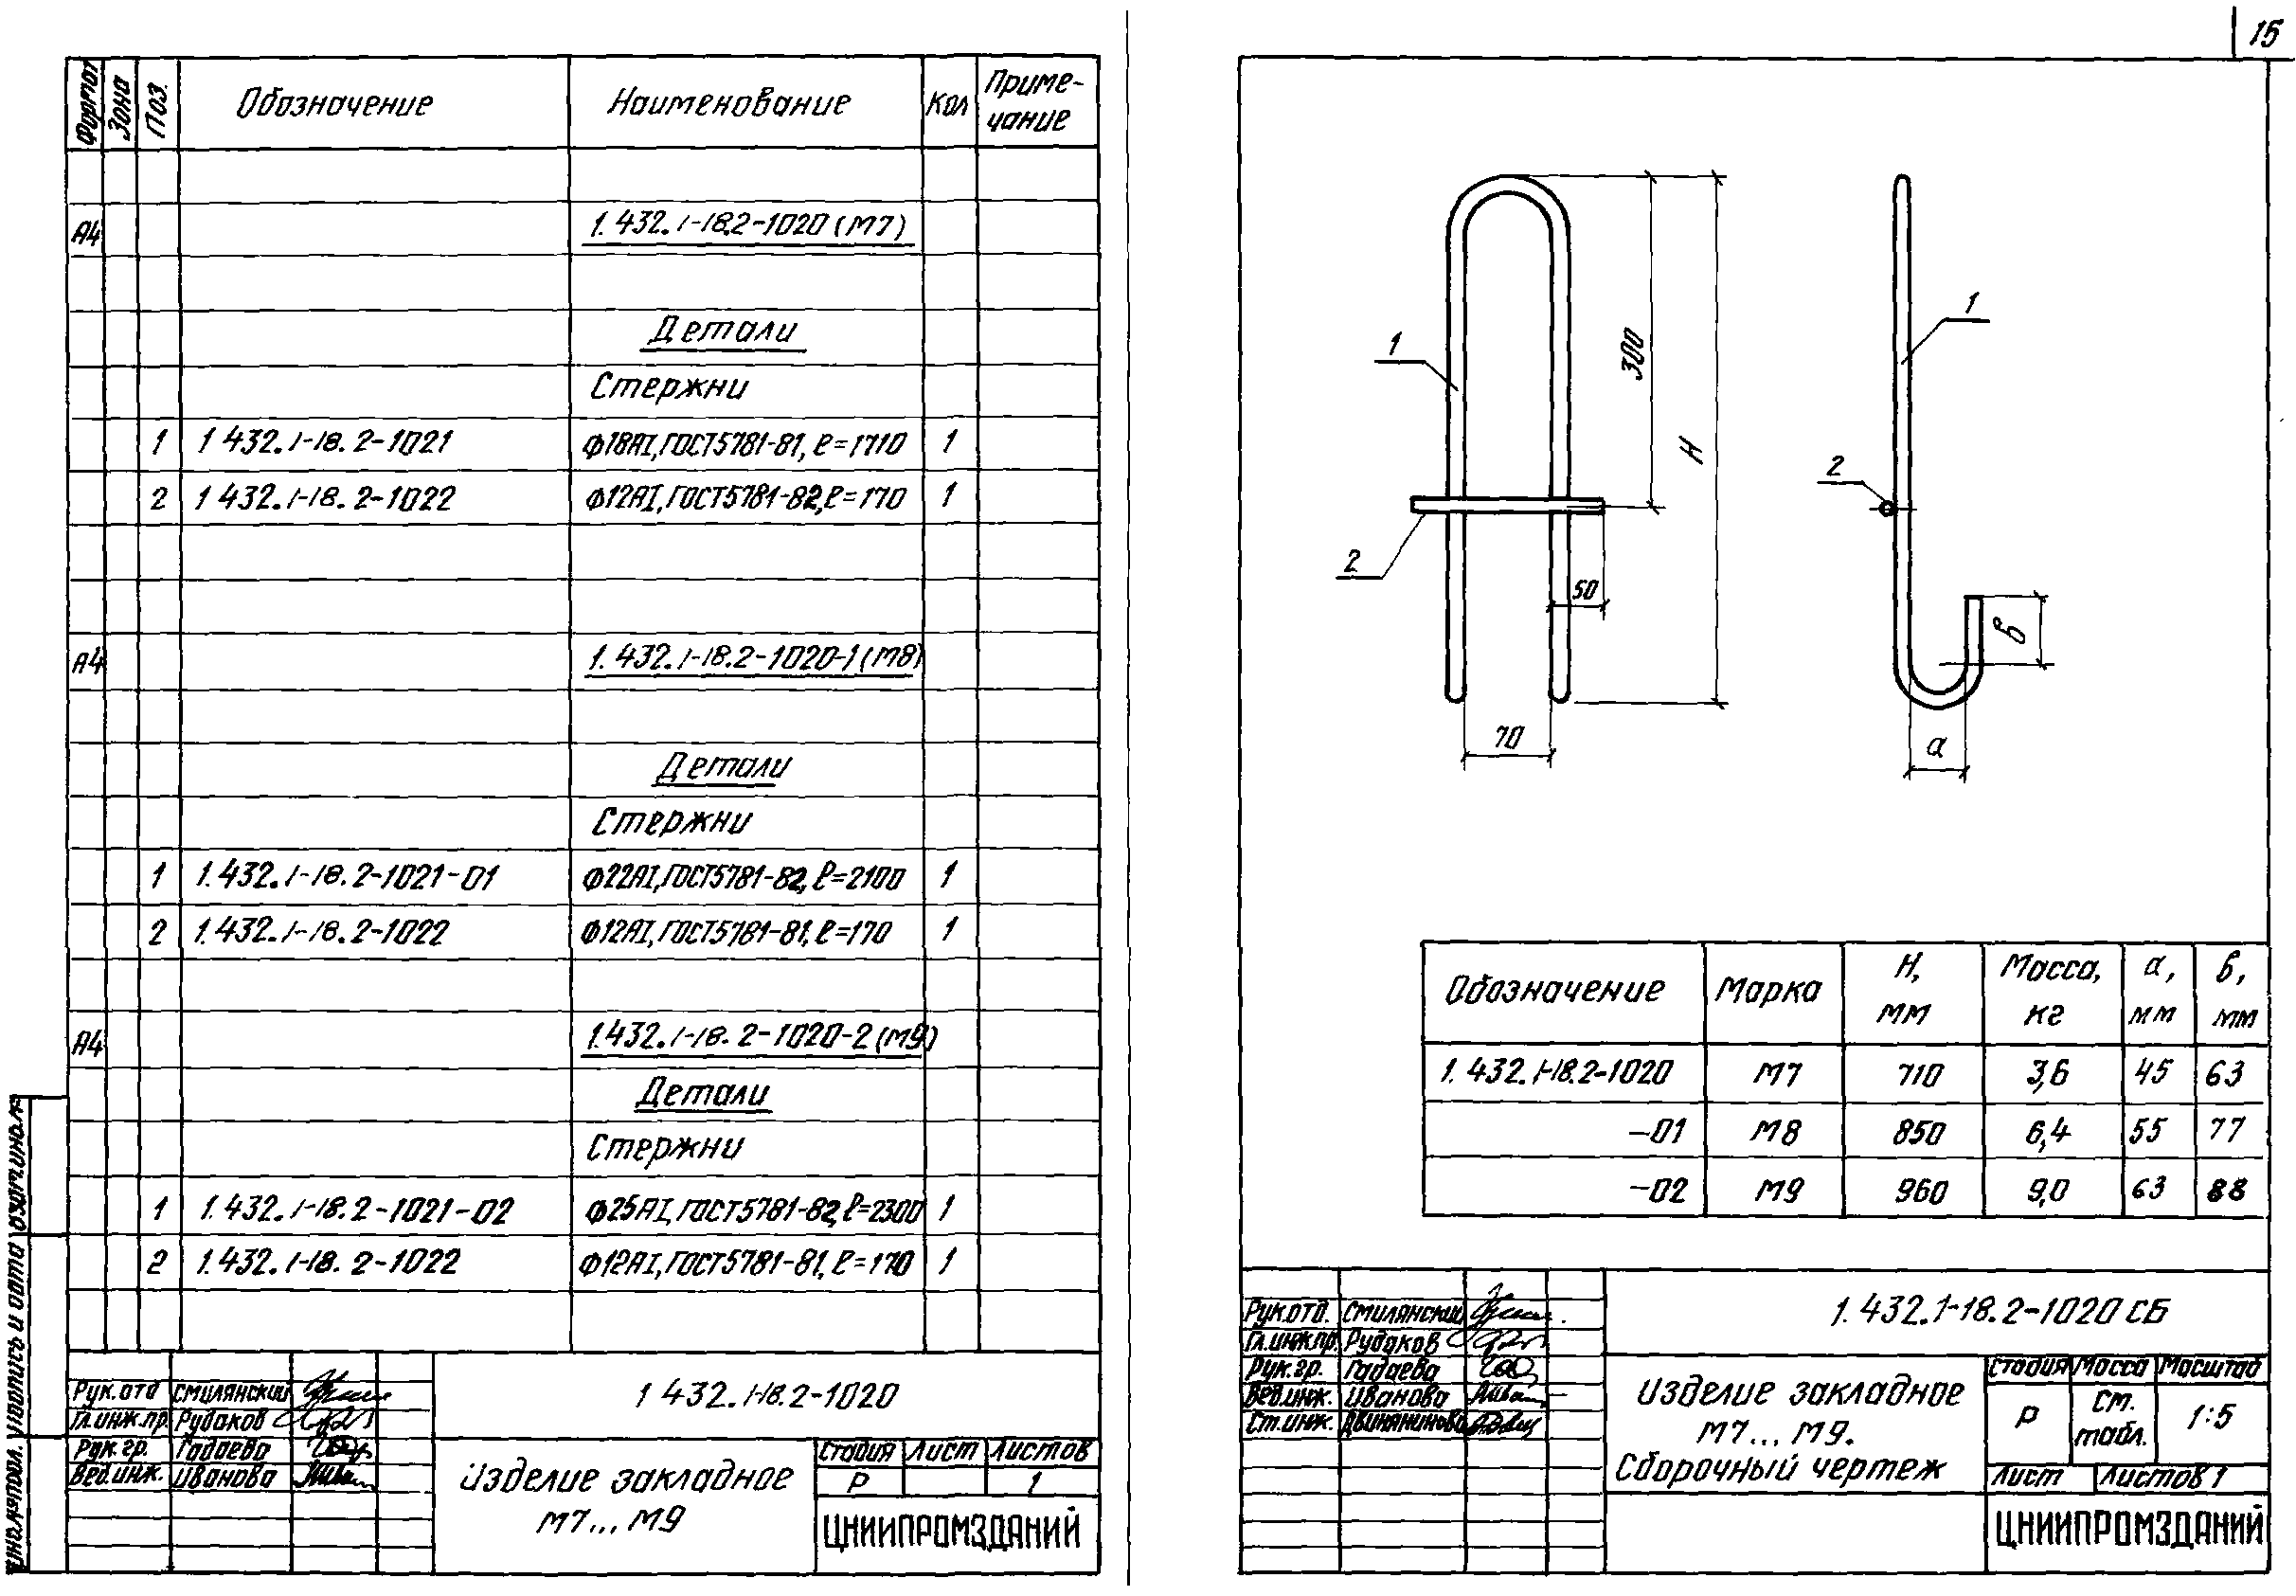 15
Формат Зона Поз. Обозначение Наименование Кол Приме-
чание
А4 1. 432. 1-18.2-1020 (М7)
Детали
Стержни
1 1 432. 1-18. 2-1021 Ф18АI, ГОСТ5781-81, ℓ=1710 1
2 1 432. 1-18. 2-1022 Ф12АI, ГОСТ5781-82, ℓ=170 1
А4 1. 432. 1-18.2-1020-1 (М8)
Детали
Стержни
1 1. 432. 1-18. 2-1021-01 Ф22АI, ГОСТ5781-82, ℓ=2100 1
2 1. 432. 1-18. 2-1022 Ф12АI, ГОСТ5781-81, ℓ=170 1
А4 1.432. 1-18. 2-1020-2 (М9)
Детали
Стержни
1 1. 432. 1-18. 2-1021-02 Ф25АI, ГОСТ5781-82, ℓ=2300 1
2 1. 432. 1-18. 2-1022 Ф12АI, ГОСТ5781-81, ℓ=170 1
Рук. отд Смилянский
Гл.инж.пр. Рудаков
Рук. гр. Гадаева
Вед.инж. Иванова
1 432. 1-18.2-1020
Изделие закладное
М7... М9
Стадия Лист Листов
Р 1
ЦНИИПРОМЗДАНИЙ
Подпись и дата
1
2
300
Н
50
70
1
2
в
а
Обозначение Марка Н,
мм Масса,
кг а,
мм в,
мм
1. 432. 1-18.2-1020 М7 710 3,6 45 63
-01 М8 850 6,4 55 77
-02 М9 960 9,0 63 88
Рук.отд. Смилянский
Гл.инж.пр. Рудаков
Рук.гр. Гадаева
Вед.инж. Иванова
Ст.инж. Двинянинова
1. 432.1-18. 2-1020 СБ
Изделие закладное
М7... М9.
Сборочный чертеж
Стадия Масса Масштаб
Р См.
табл. 1:5
Лист Листов 1
ЦНИИПРОМЗДАНИЙ